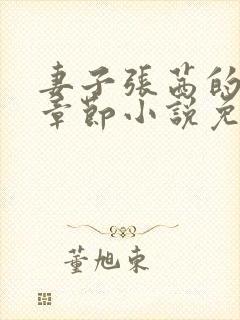 妻子張茜的
章節小說免
董旭東